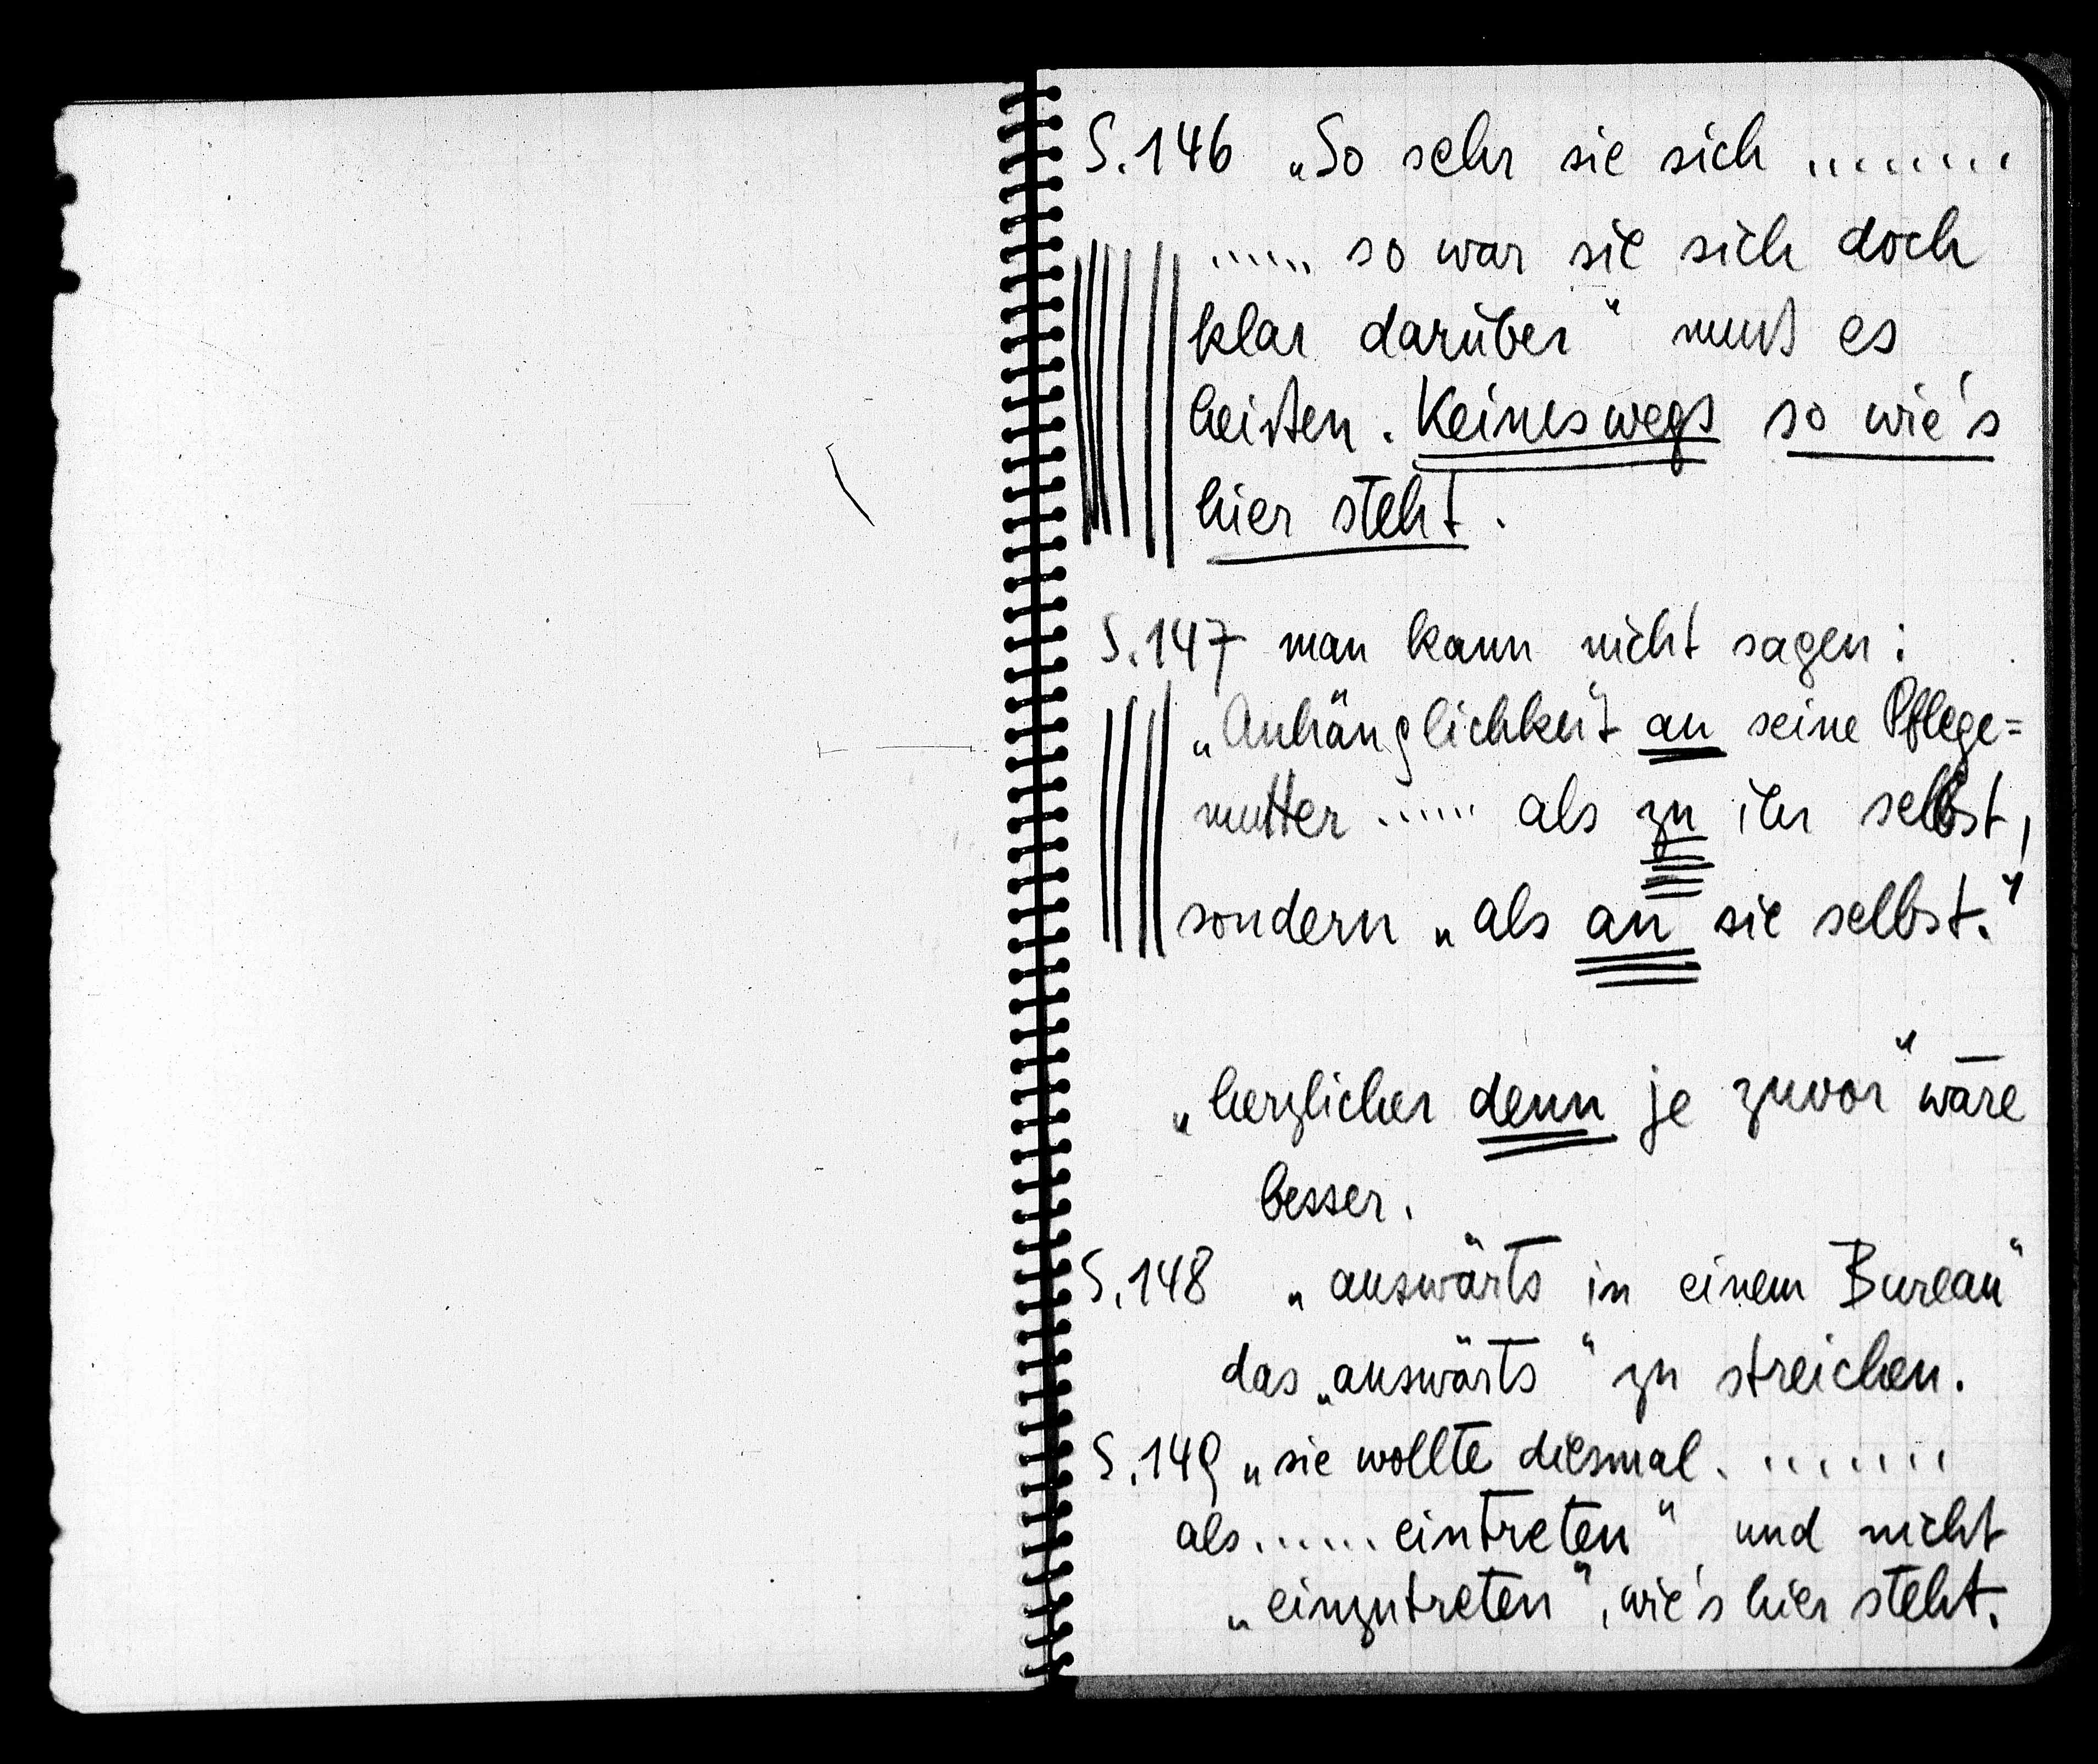 S. 146 „So sehr sie sich ........
...... so war sie sich doch
klar darüber" muß es
heißen. Keineswegs so wie's
hier steht.
S. 147 man kann nicht sagen:
„Anhänglichkeit an seine Pflege=
mutter ...... als zu ihr selbst,
sondern „als an sie selbst."
„herzlicher denn je zuvor" wäre
besser.
S. 148 „auswärts in einem Bureau"
das „auswärts" zu streichen.
S. 149 „sie wollte diesmal ........
als ...... eintreten" und nicht
„einzutreten", wie's hier steht.